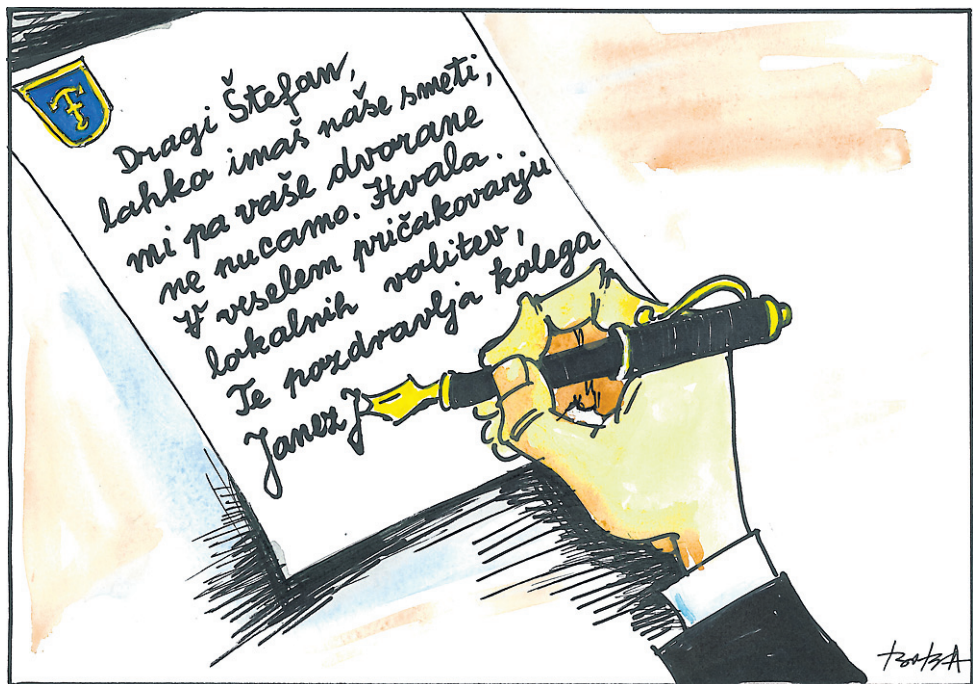 Dragi Štefan,
lahko imaš naše smeti,
mi pa vaše dvorane
ne nucamo. Hvala.
V veselem pričakovanju
lokalnih volitev,
Te pozdravlja kolega
Janez J